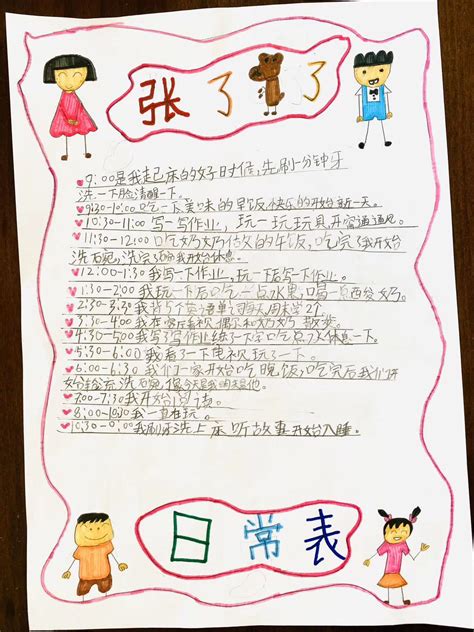 张了了
9:00是我起床的好时候,先刷一分钟牙
洗一下脸清醒一下。
9:30-10:00吃一下美味的早饭快乐的开始新一天。
10:30-11:00写一写作业,玩一玩玩具开窗通通风
11:30-12:00吃奶奶做的午饭,吃完了我开始
洗碗,洗完了我开始休息。
12:00-1:30我写一下作业,玩一下后写一下作业。
1:30-2:00我玩一下后吃一点水果,喝一点酸奶
2:30-3:30我背5个英语单词每天周末学2个
3:30-4:00我在家看视频偶尔和奶奶散步。
4:30-5:00我写了写作业练了一下字吃点水休息一下。
5:30-6:00我看了一下电视玩了一下。
6:30-6:00我们一家开始吃晚饭,吃完后我们开
始轮流洗碗,像今天是我明天是他。
7:00-7:30我开始读。
8:00-10:00我一直在玩。
10:30-0:00我刷牙洗上床听故事开始入睡。
日常表